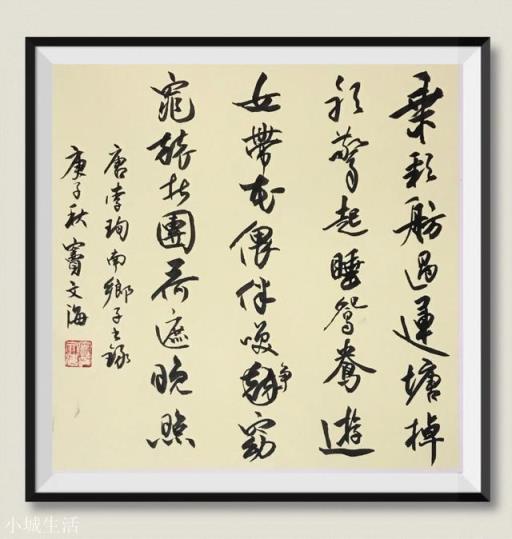 乘彩舫過蓮塘棹
歌驚起睡鴛鴦遊
女帶花偎伴咲爭窈
窕競折團荷遮晚照
唐李珣南鄉子錄
庚子秋竇文海
小城生活